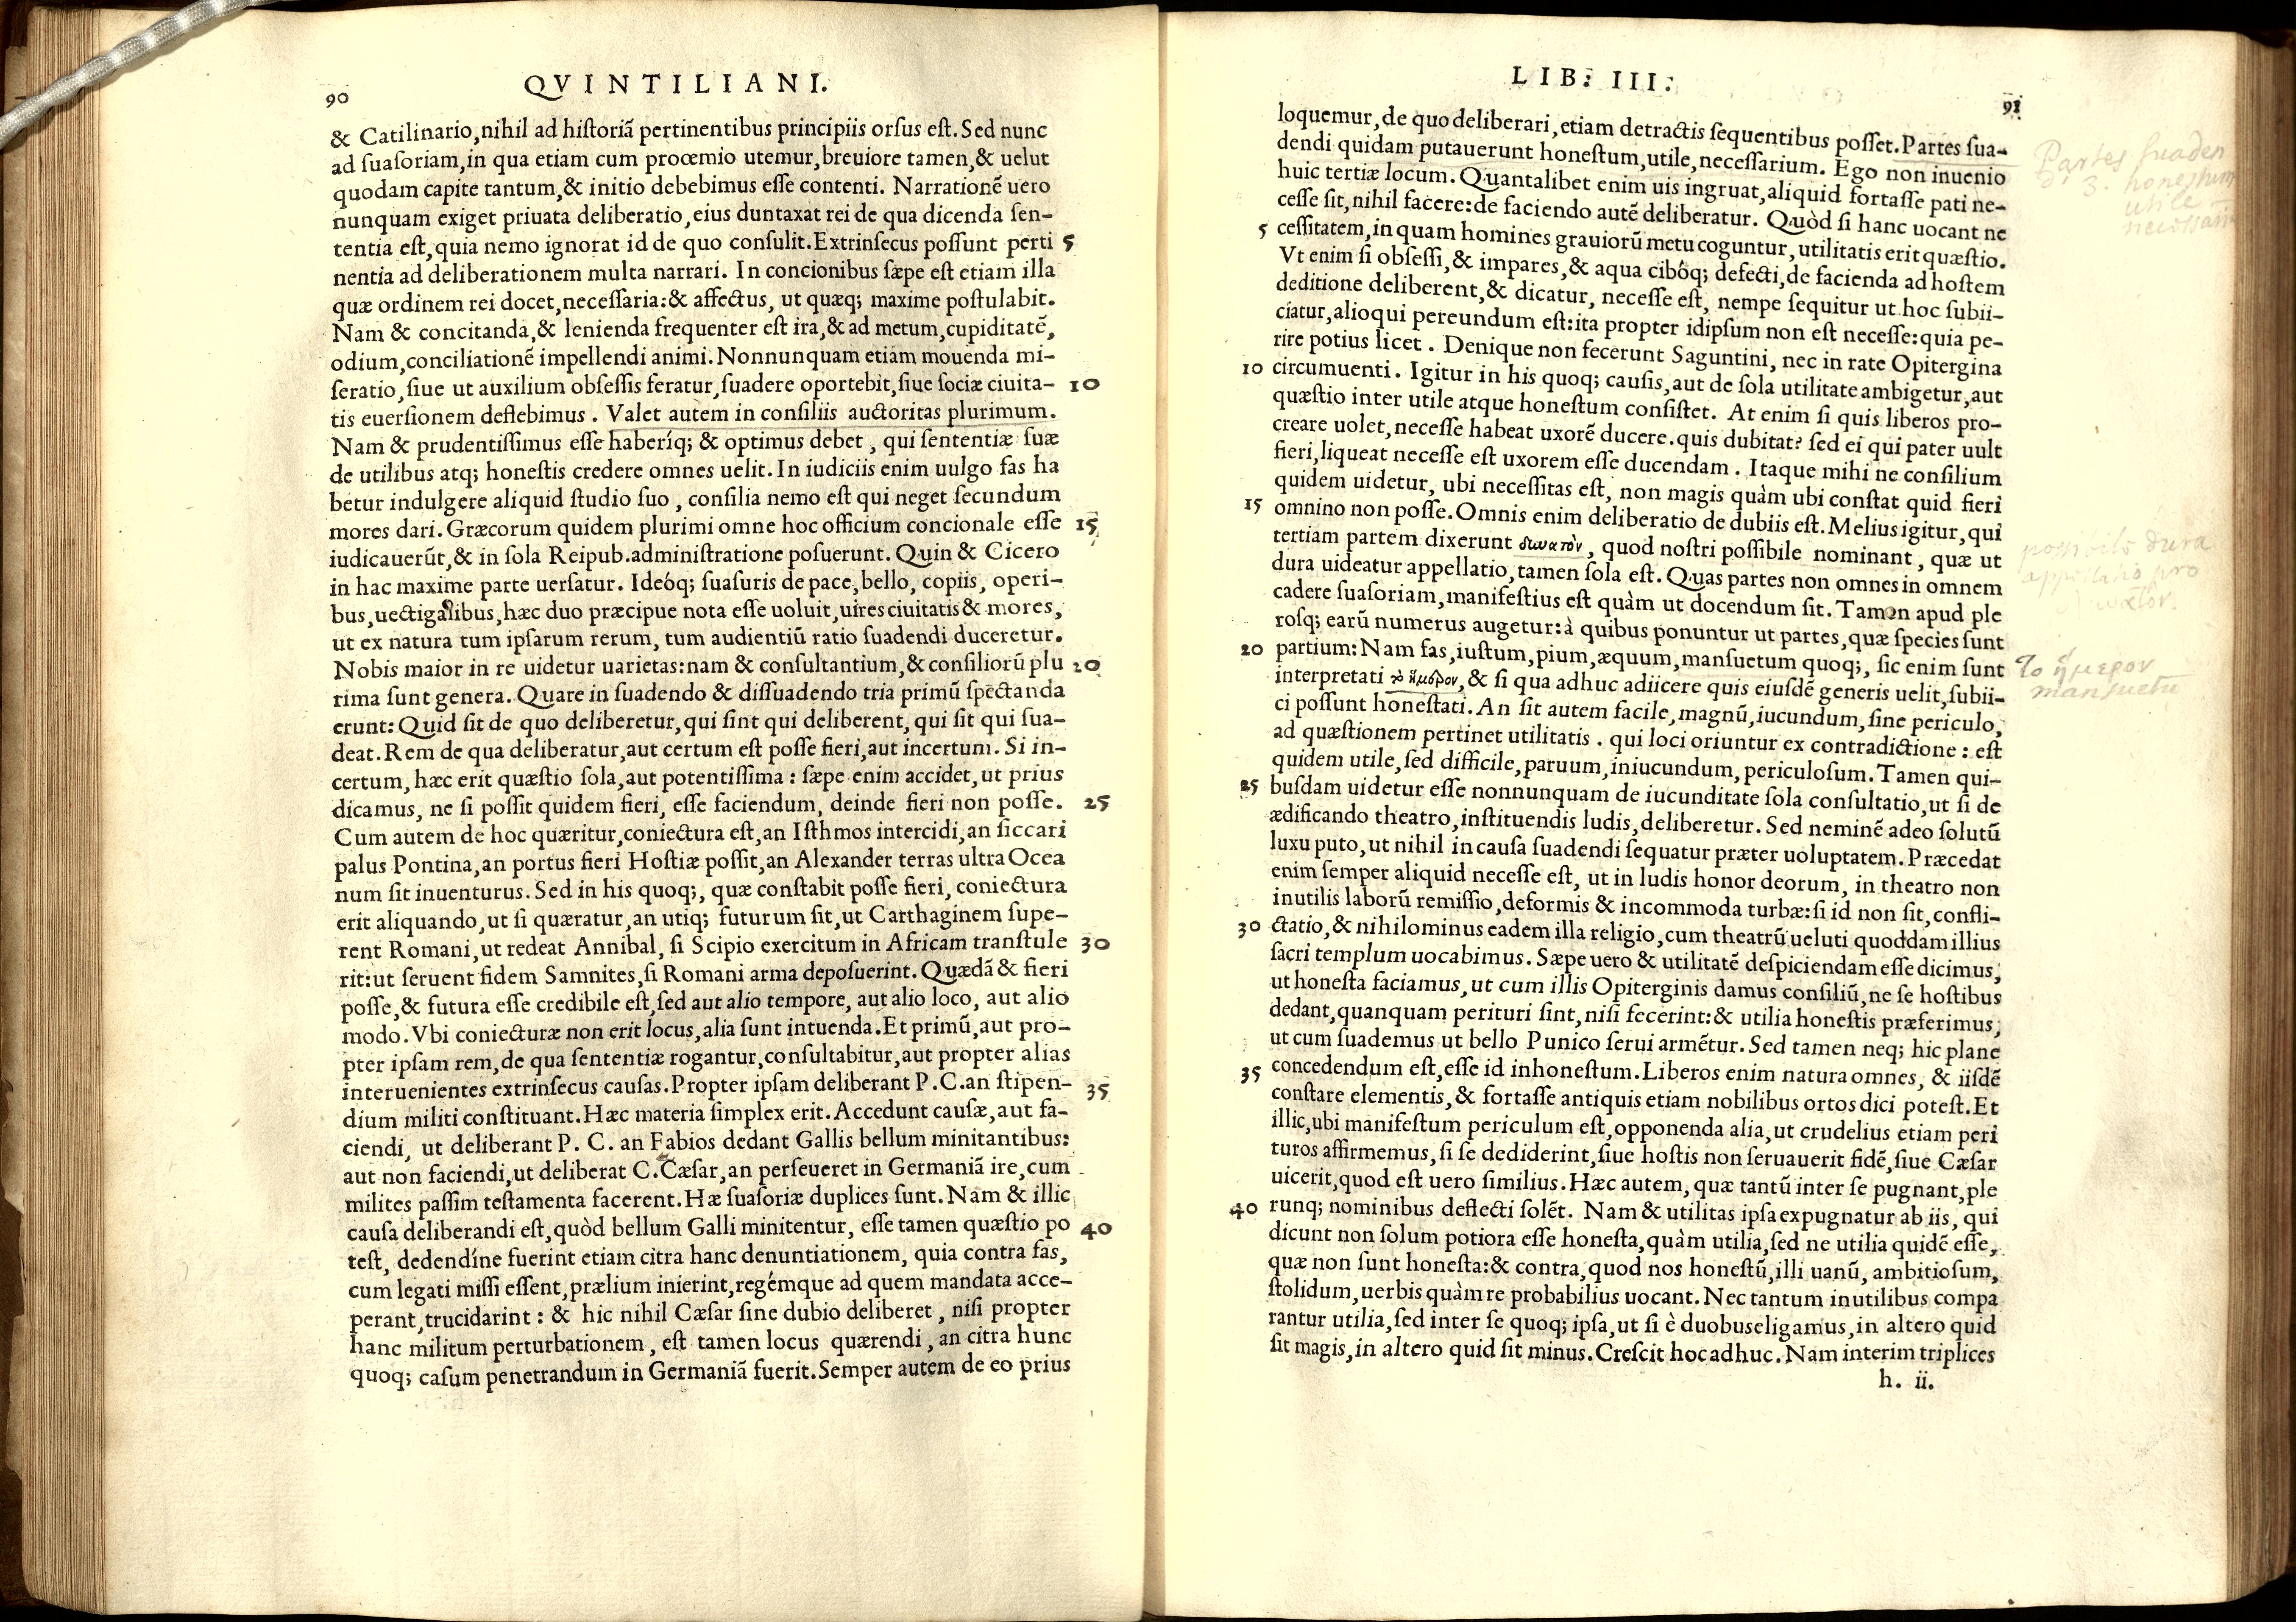 90
QVINTILIANI.
& Catilinario, nihil ad historiã pertinentibus principiis orsus est. Sed nunc
ad suasoriam, in qua etiam cum proœmio utemur, breuiore tamen, & uelut
quodam capite tantum, & initio debebimus esse contenti. Narrationẽ uero
nunquam exiget priuata deliberatio, eius duntaxat rei de qua dicenda sen-
tentia est, quia nemo ignorat id de quo consulit. Extrinsecus possunt perti 5
nentia ad deliberationem multa narrari. In concionibus sæpe est etiam illa
quæ ordinem rei docet, necessaria: & affectus, ut quæq; maxime postulabit.
Nam & concitanda, & lenienda frequenter est ira, & ad metum, cupiditatẽ,
odium, conciliationẽ impellendi animi. Nonnunquam etiam mouenda mi-
seratio, siue ut auxilium obsessis feratur, suadere oportebit, siue sociæ ciuita- 10
tis euersionem deflebimus. Valet autem in consiliis auctoritas plurimum.
Nam & prudentissimus esse haberíq; & optimus debet, qui sententiæ suæ
de utilibus atq; honestis credere omnes uelit. In iudiciis enim uulgo fas ha
betur indulgere aliquid studio suo, consilia nemo est qui neget secundum
mores dari. Græcorum quidem plurimi omne hoc officium concionale esse 15
iudicauerũt, & in sola Reipub. administratione posuerunt. Quin & Cicero
in hac maxime parte uersatur. Ideóq; suasuris de pace, bello, copiis, operi-
bus, uectigalibus, hæc duo præcipue nota esse uoluit, uires ciuitatis & mores,
ut ex natura tum ipsarum rerum, tum audientiũ ratio suadendi duceretur.
Nobis maior in re uidetur uarietas: nam & consultantium, & consiliorũ plu 20
rima sunt genera. Quare in suadendo & dissuadendo tria primũ spectanda
erunt: Quid sit de quo deliberetur, qui sint qui deliberent, qui sit qui sua-
deat. Rem de qua deliberatur, aut certum est posse fieri, aut incertum. Si in-
certum, hæc erit quæstio sola, aut potentissima: sæpe enim accidet, ut prius
dicamus, ne si possit quidem fieri, esse faciendum, deinde fieri non posse. 25
Cum autem de hoc quæritur, coniectura est, an Isthmos intercidi, an siccari
palus Pontina, an portus fieri Hostiæ possit, an Alexander terras ultra Ocea
num sit inuenturus. Sed in his quoq;, quæ constabit posse fieri, coniectura
erit aliquando, ut si quæratur, an utiq; futurum sit, ut Carthaginem supe-
rent Romani, ut redeat Annibal, si Scipio exercitum in Africam transtule 30
rit: ut seruent fidem Samnites, si Romani arma deposuerint. Quædã & fieri
posse, & futura esse credibile est, sed aut alio tempore, aut alio loco, aut alio
modo. Vbi coniecturæ non erit locus, alia sunt intuenda. Et primũ, aut pro-
pter ipsam rem, de qua sententiæ rogantur, consultabitur, aut propter alias
interuenientes extrinsecus causas. Propter ipsam deliberant P. C. an stipen- 35
dium militi constituant. Hæc materia simplex erit. Accedunt causæ, aut fa-
ciendi, ut deliberant P. C. an Fabios dedant Gallis bellum minitantibus:
aut non faciendi, ut deliberat C. Cæsar, an perseueret in Germaniã ire, cum
milites passim testamenta facerent. Hæ suasoriæ duplices sunt. Nam & illic
causa deliberandi est, quòd bellum Galli minitentur, esse tamen quæstio po 40
test, dedendíne fuerint etiam citra hanc denuntiationem, quia contra fas,
cum legati missi essent, prælium inierint, regémque ad quem mandata acce-
perant, trucidarint: & hic nihil Cæsar sine dubio deliberet, nisi propter
hanc militum perturbationem, est tamen locus quærendi, an citra hunc
quoq; casum penetrandum in Germaniã fuerit. Semper autem de eo prius
LIB: III:
91
loquemur, de quo deliberari, etiam detractis sequentibus posset. Partes sua-
dendi quidam putauerunt honestum, utile, necessarium. Ego non inuenio
huic tertiæ locum. Quantalibet enim uis ingruat, aliquid fortasse pati ne-
cesse sit, nihil facere: de faciendo autẽ deliberatur. Quòd si hanc uocant ne
5 cessitatem, in quam homines grauiorũ metu coguntur, utilitatis erit quæstio.
Vt enim si obsessi, & impares, & aqua cibóq; defecti, de facienda ad hostem
deditione deliberent, & dicatur, necesse est, nempe sequitur ut hoc subii-
ciatur, alioqui pereundum est: ita propter idipsum non est necesse: quia pe-
rire potius licet. Denique non fecerunt Saguntini, nec in rate Opitergina
10 circumuenti. Igitur in his quoq; causis, aut de sola utilitate ambigetur, aut
quæstio inter utile atque honestum consistet. At enim si quis liberos pro-
creare uolet, necesse habeat uxorẽ ducere. quis dubitat? sed ei qui pater uult
fieri, liqueat necesse est uxorem esse ducendam. Itaque mihi ne consilium
quidem uidetur, ubi necessitas est, non magis quàm ubi constat quid fieri
15 omnino non posse. Omnis enim deliberatio de dubiis est. Melius igitur, qui
tertiam partem dixerunt δυνατὸν, quod nostri possibile nominant, quæ ut
dura uideatur appellatio, tamen sola est. Quas partes non omnes in omnem
cadere suasoriam, manifestius est quàm ut docendum sit. Tamen apud ple
rosq; earũ numerus augetur: à quibus ponuntur ut partes, quæ species sunt
20 partium: Nam fas, iustum, pium, æquum, mansuetum quoq;, sic enim sunt
interpretati τὸ ἥμερον, & si qua adhuc adiicere quis eiusdẽ generis uelit, subii-
ci possunt honestati. An sit autem facile, magnũ, iucundum, sine periculo,
ad quæstionem pertinet utilitatis. qui loci oriuntur ex contradictione: est
quidem utile, sed difficile, paruum, iniucundum, periculosum. Tamen qui-
25 busdam uidetur esse nonnunquam de iucunditate sola consultatio, ut si de
ædificando theatro, instituendis ludis, deliberetur. Sed neminẽ adeo solutũ
luxu puto, ut nihil in causa suadendi sequatur præter uoluptatem. Præcedat
enim semper aliquid necesse est, ut in ludis honor deorum, in theatro non
inutilis laborũ remissio, deformis & incommoda turbæ: si id non sit, confli-
30 ctatio, & nihilominus eadem illa religio, cum theatrũ ueluti quoddam illius
sacri templum uocabimus. Sæpe uero & utilitatẽ despiciendam esse dicimus,
ut honesta faciamus, ut cum illis Opiterginis damus consiliũ, ne se hostibus
dedant, quanquam perituri sint, nisi fecerint: & utilia honestis præferimus,
ut cum suademus ut bello Punico serui armẽtur. Sed tamen neq; hic plane
35 concedendum est, esse id inhonestum. Liberos enim natura omnes, & iisdẽ
constare elementis, & fortasse antiquis etiam nobilibus ortos dici potest. Et
illic, ubi manifestum periculum est, opponenda alia, ut crudelius etiam peri
turos affirmemus, si se dediderint, siue hostis non seruauerit fidẽ, siue Cæsar
uicerit, quod est uero similius. Hæc autem, quæ tantũ inter se pugnant, ple
40 runq; nominibus deflecti solẽt. Nam & utilitas ipsa expugnatur ab iis, qui
dicunt non solum potiora esse honesta, quàm utilia, sed ne utilia quidẽ esse,
quæ non sunt honesta: & contra, quod nos honestũ, illi uanũ, ambitiosum,
stolidum, uerbis quàm re probabilius uocant. Nec tantum inutilibus compa
rantur utilia, sed inter se quoq; ipsa, ut si è duobus eligamus, in altero quid
sit magis, in altero quid sit minus. Crescit hoc adhuc. Nam interim triplices
h. ii.
Partes suaden
di 3. honestum
utile
necessariũ
possibile dura
appellatio pro
δυνατόν.
τὸ ἥμερον
mansuetũ